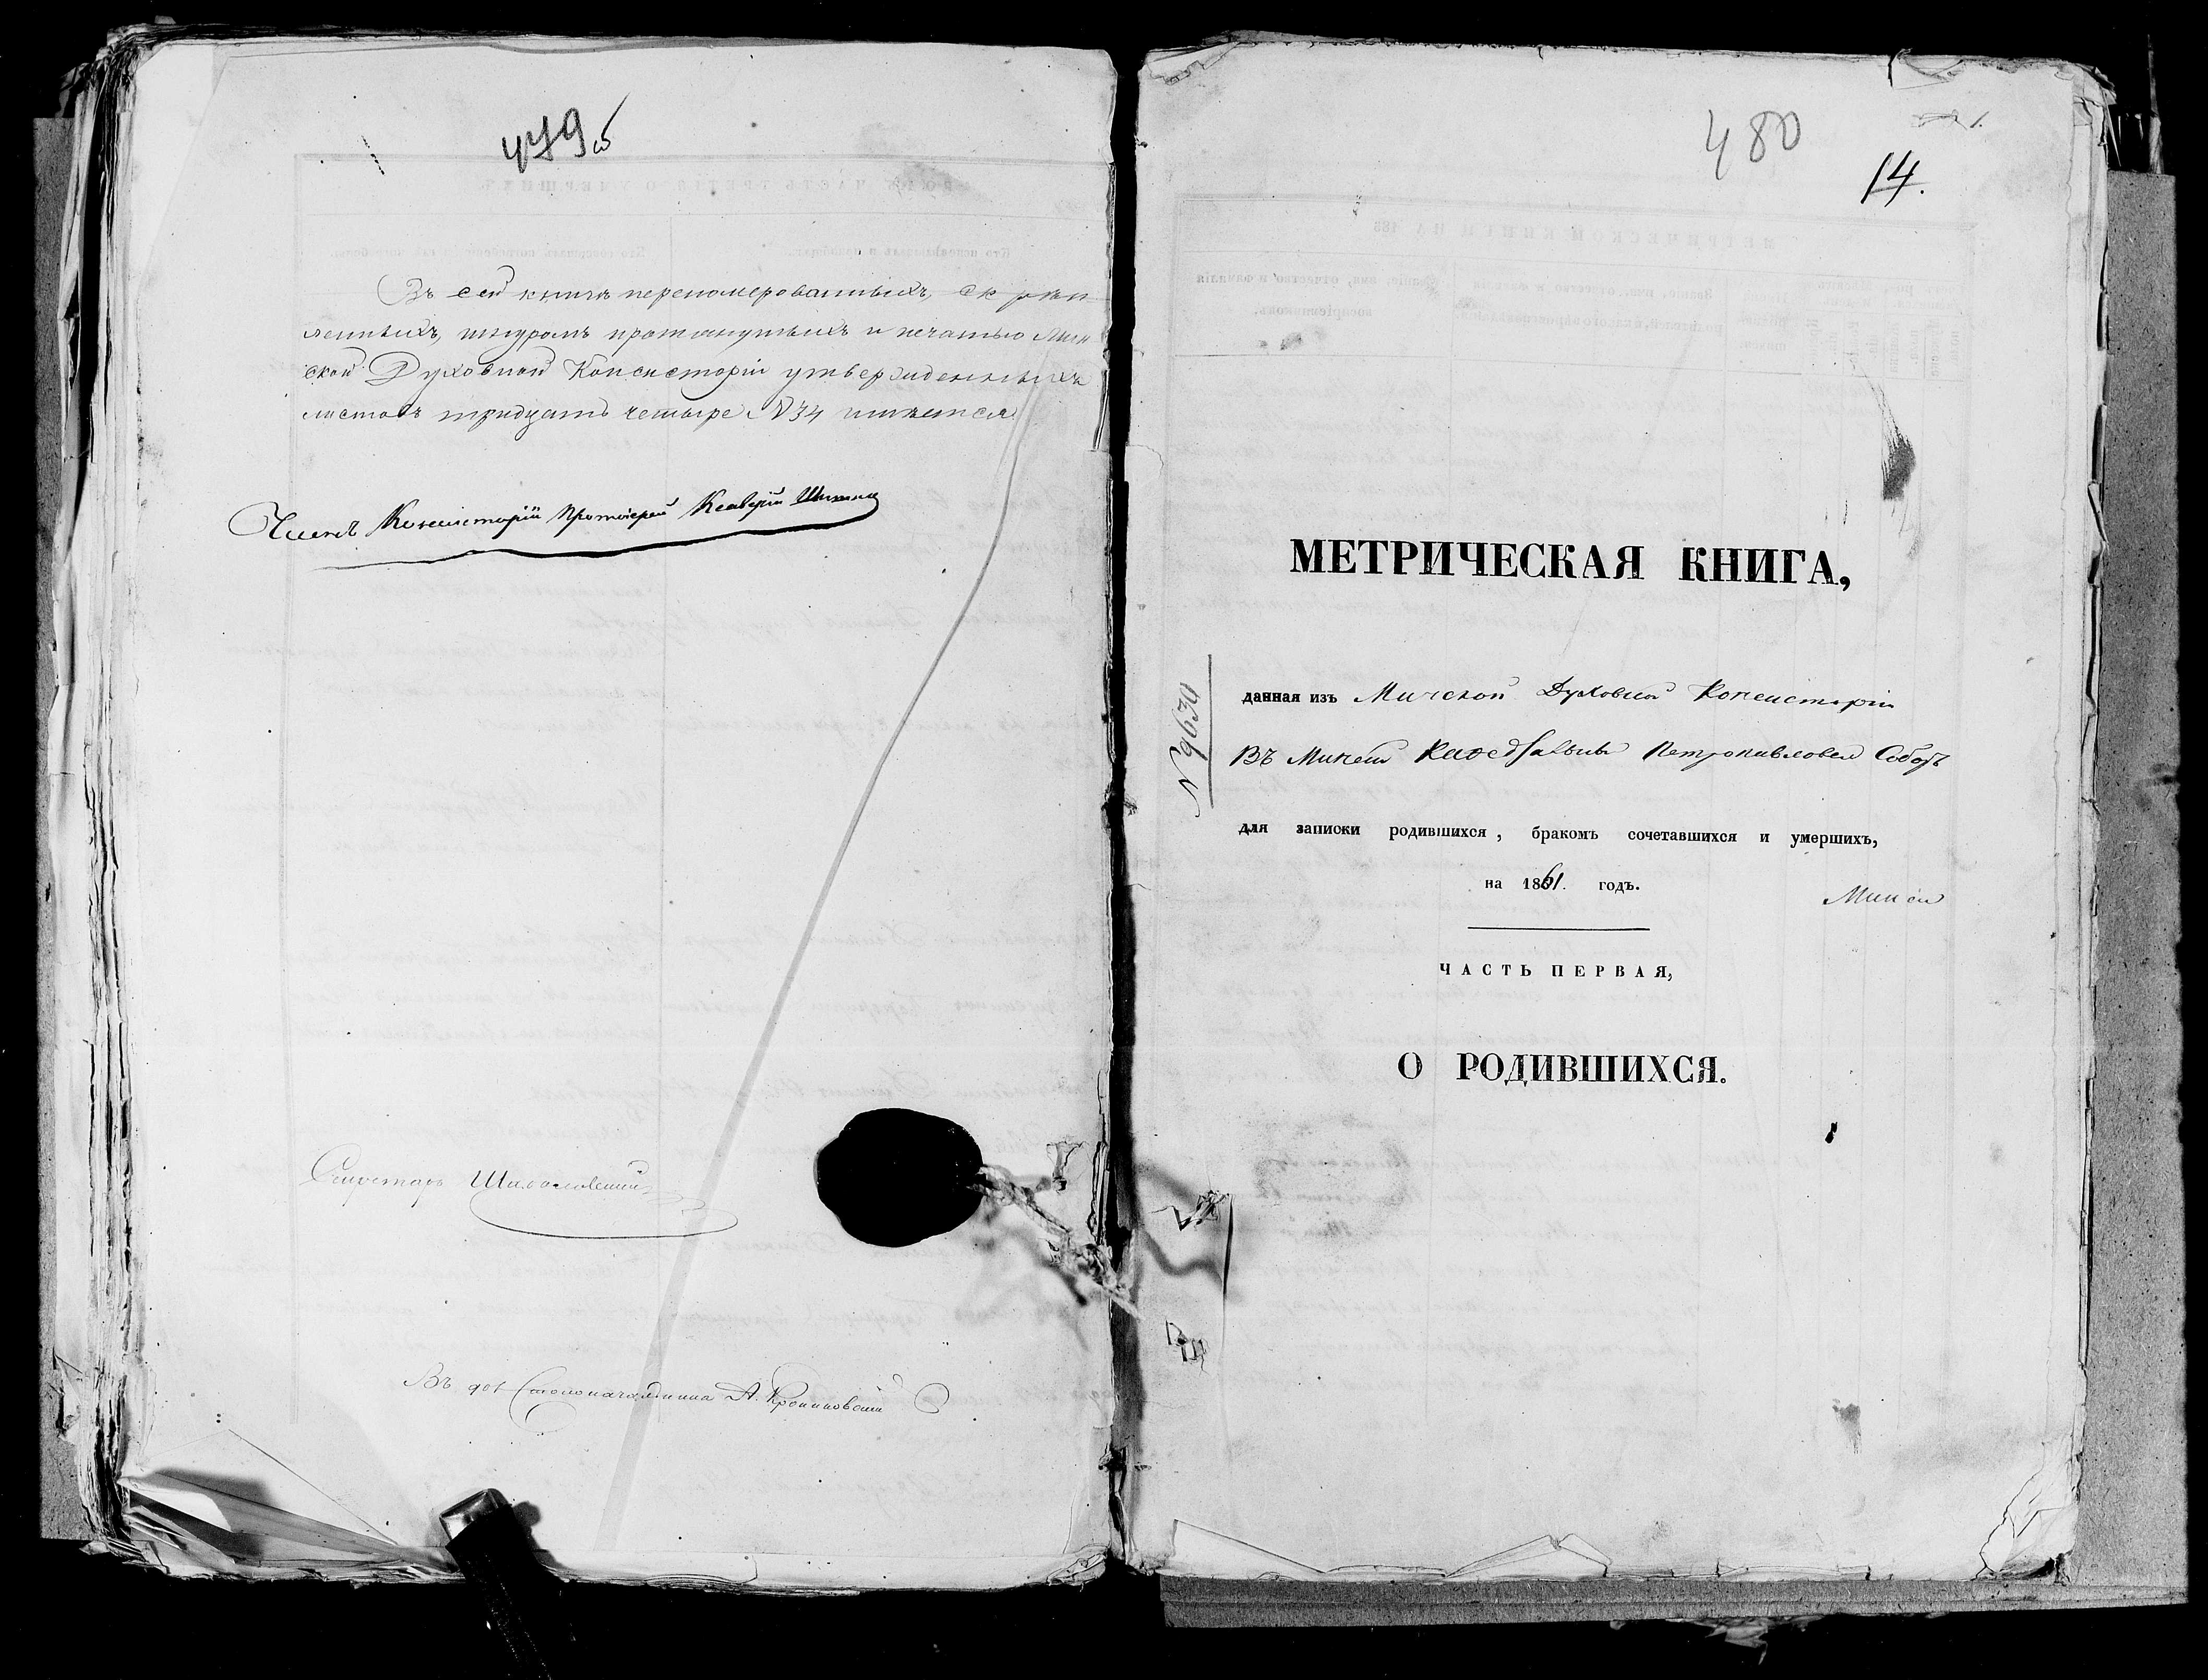 479 об
Въ сей книгѣ перномерованныхъ, скрѣп
ленныхъ, шнуромъ протянутыхъ и печатью Мин
ской Духовной Консисторіи утвержденныхъ
листовъ тридцать четыре №34 имѣется
Членъ Консисторіи Протоіерей
Секретарь
Въ дол Столоначальника А.
480
14.
МЕТРИЧЕСКАЯ КНИГА,
№ 9630
данная изъ Минской Духовной Консисторіи
Въ Минскій Каѳедральный Петропавловск Соборъ
для записки родившихся, бракомъ сочетавшихся и умершихъ,
на 1861. годъ.
ЧАСТЬ ПЕРВАЯ,
О РОДИВШИХСЯ.